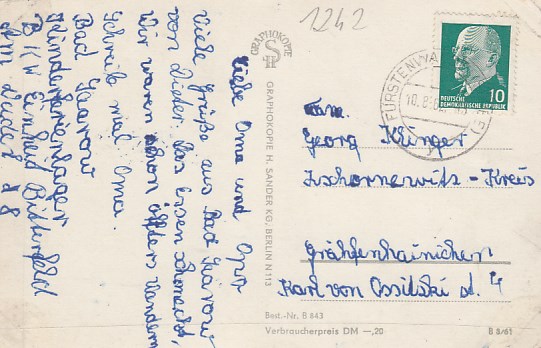 1242
Liebe Oma und Opa
Viele Grüße aus Bad Saarow
von Dieter. Das Essen schmeckt,
Wir waren schon öfters wandern
Schreib mal Oma.
Bad Saarow
Kinderferienlager
BKW Einheit Bitterfeld
GRAPHOKOPIE
GRAPHOKOPIE H. SANDER KG, BERLIN N 113
DEUTSCHE
DEMOKRATISCHE REPUBLIK
10
FÜRSTENWA
Fam.
Georg Klinger
Zschornewitz-Kreis
Gräfenhainichen
Karl von Ossietzki
Best.-Nr. B 843
Verbraucherpreis DM —,20
B 8/61